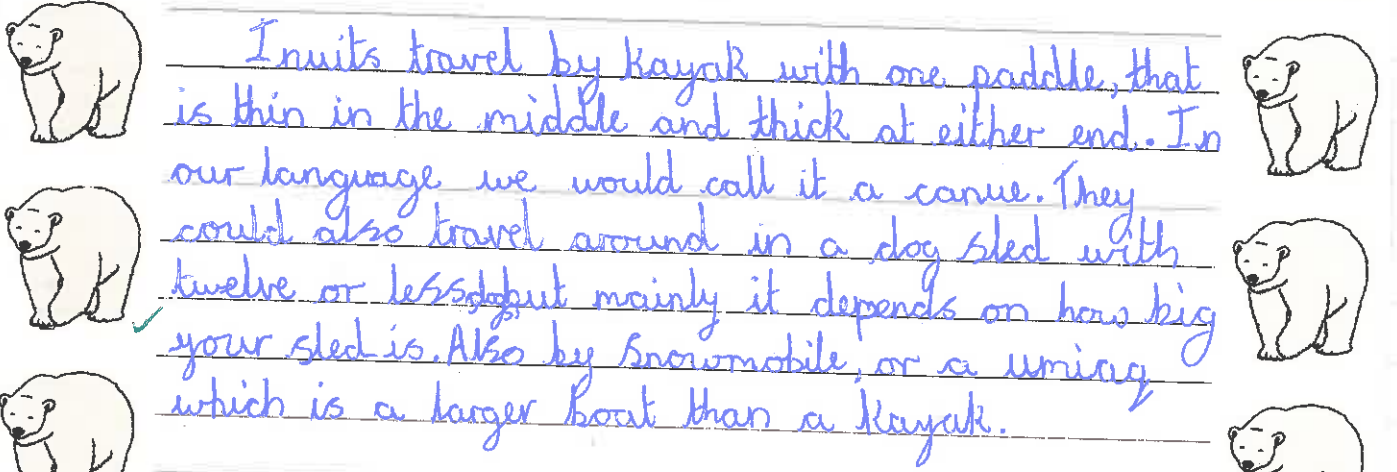 Inuits travel by kayak with one paddle, that
is thin in the middle and thick at either end. In
our language we would call it a canue. They
could also travel around in a dog sled with
twelve or less dogs but mainly it depends on how big
your sled is. Also by snowmobile, or a umiaq
which is a larger boat than a kayak.